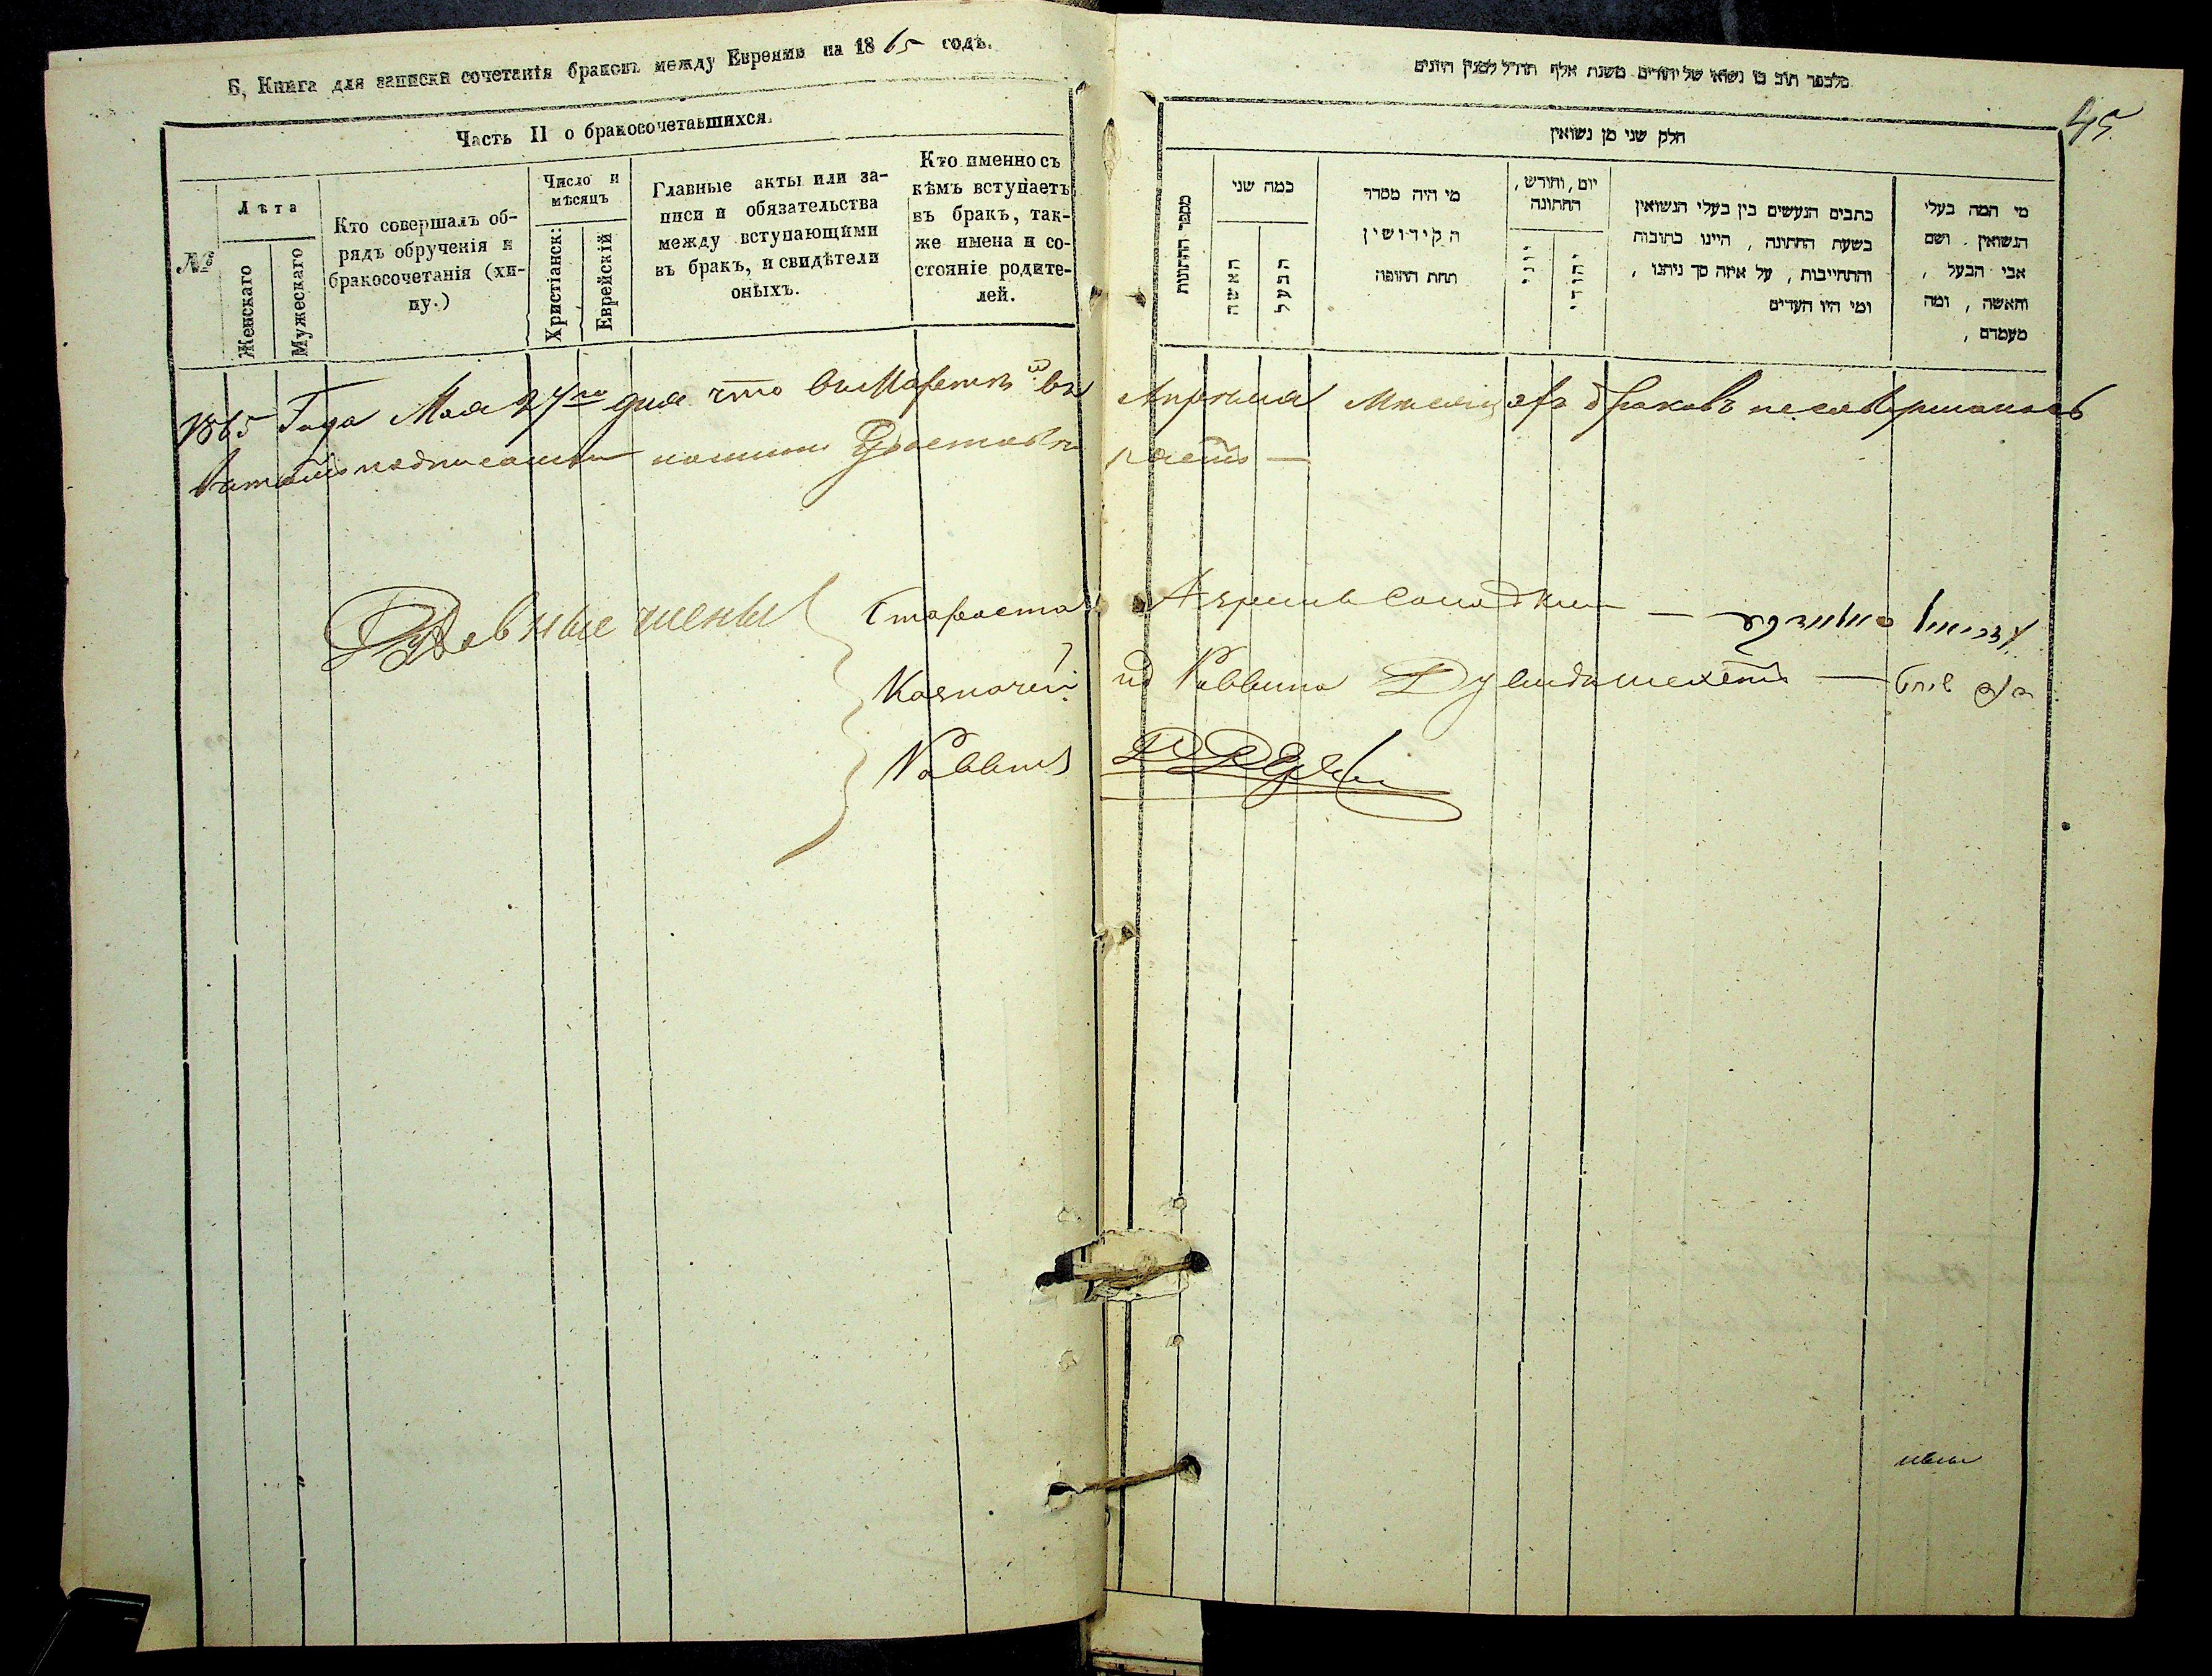 Б, Книга для записки сочетанія браковъ между Евреями на 1865 годъ.
Часть II о бракосочетавшихся.
№
Лѣта
Женскаго
Мужескаго
Кто совершалъ об-
рядъ обрученія и
бракосочетанія (хи-
пу.)
Число и
мѣсяцъ
Христіанск:
Еврейскій
Главные акты или за-
писи и обязательства
между вступающими
въ бракъ, и свидѣтели
оныхъ.
Кто именно съ
кѣмъ вступаетъ
въ бракъ, так-
же имена и со-
стояніе родите-
лей.
45
חלק שני מן נשואין
מספר החתונות
כמה שני
האשה
הבעל
מי היה מסדר
הקידושין
תחת החופה
יום, וחודש,
החתונה
יוני
יהודי
כתבים הנעשים בין בעלי הנשואין
בשעת החתונה, היינו כתובות
והתחייבות, על איזה סך ניתנו,
ומי היו העדים
מי המה בעלי
הנשואין. ושם
אבי הבעל,
והאשה, ומה
מעמדם,
1865 Года Мая 27го дня что въ Мартѣ и въ Апрѣлѣ Мѣсяцахъ браковъ не совершалось
въ томъ подписомъ нашимъ Удостовѣряемъ —
Духовные члены
Староста
Казначей
ид Раввина
Раввинъ